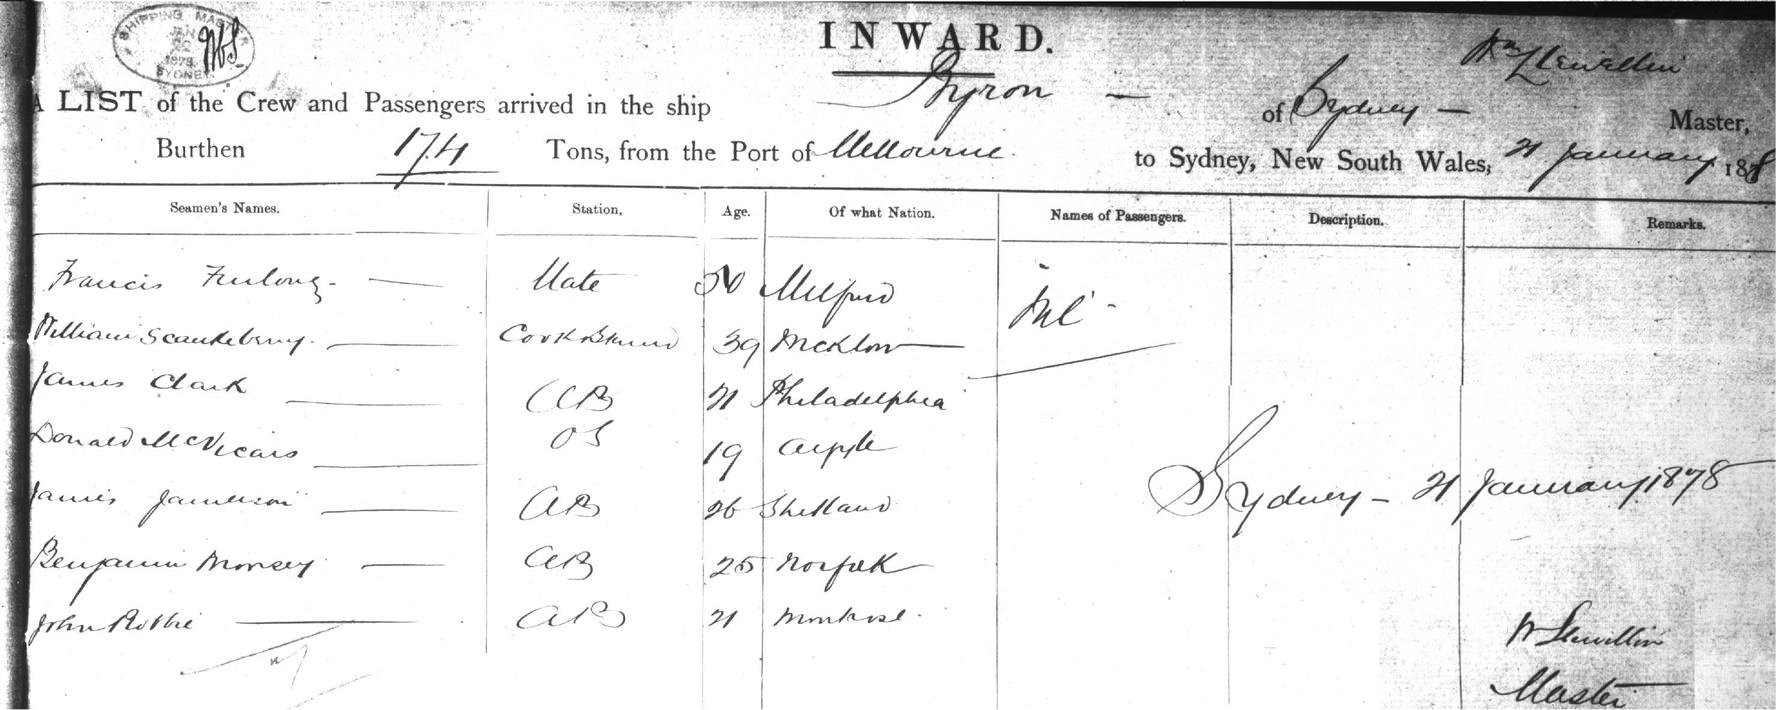 SHIPPING MASTER
JAN
1878
SYDNEY
INWARD.
Wm Llewellin
A LIST of the Crew and Passengers arrived in the ship Byron — of Sydney — Master,
Burthen 174 Tons, from the Port of Melbourne to Sydney, New South Wales, 21 January 1878
Seamen's Names. Station, Age. Of what Nation. Names of Passengers. Description. Remarks.
Francis Furlong Mate 50 Milford Nil
William Scantlebury Cook & Stewd 39 Wicklow
James Clark AB 21 Philadelphia
Donald McVicars OS 19 Argyle
James Jamieson AB 26 Shetland
Sydney - 21 January 1878
Benjamin Morsey AB 25 Norfolk
John Rothie AB 21 Montrose
W Llewellin
Master